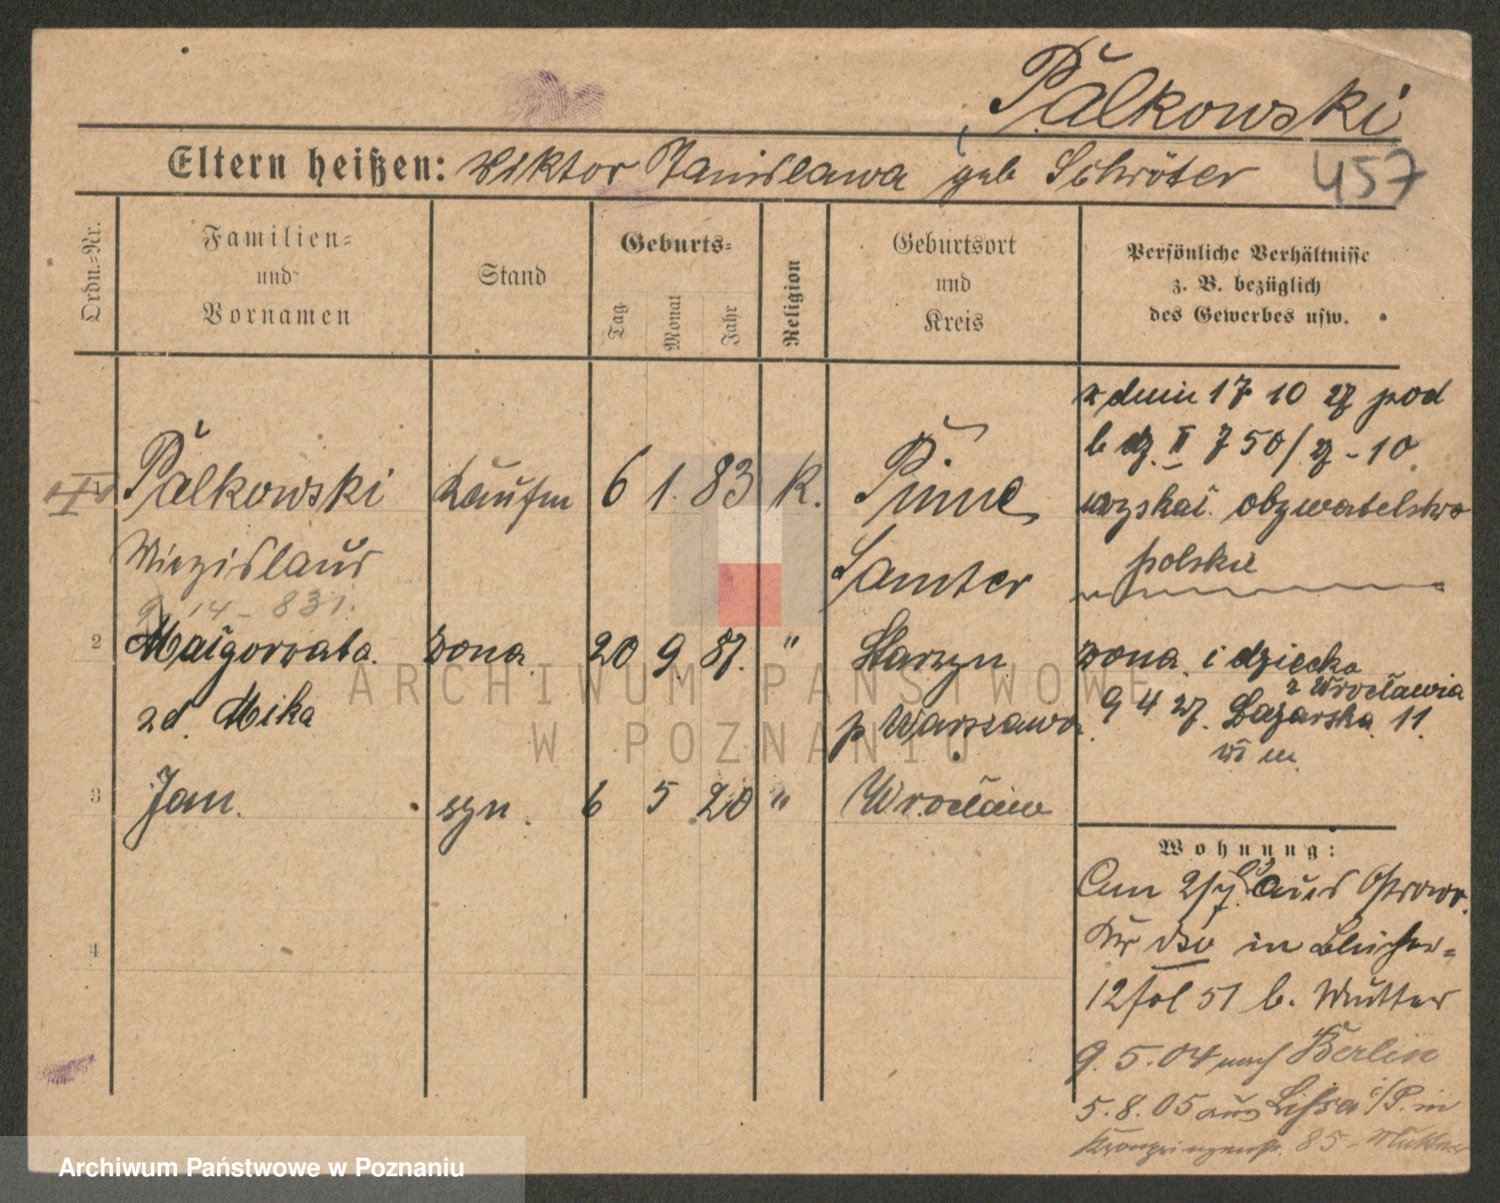 Pălkowski
457
Eltern heißen: Wiktor Stanislawa geb Schröter
Ordn.-Nr.
Familien- und Vornamen
Stand
Geburts-
Tag
Monat
Jahr
Religion
Geburtsort und Kreis
Persönliche Verhältnisse
z. B. bezüglich
des Gewerbes usw.
w dniu 17 10 27 pod
l. dz. II 750/27-10
uzyskał obywatelstwo
polskie
Pălkowski Kaufm 6 1. 83 K. Pinne
Wiezislaus Samter
14-831.
2 Małgorzata żona 20 9 87. " p Warszawa
zd. Mika
żona i dziecko
z Wrocławia
9 4 27. Łazarska 11
3 Jan. syn. 6 5 20 " Wrocław
4
Wohnung:
Am 2/7 03 aus Ostrowo
in Blücher-
12 fol 51 b. Mutter
9. 5. 04 nach Berlin
5. 8. 05 aus Lissa i/P. in
Kronprinzenstr. 85 - Mutter
ARCHIWUM PAŃSTWOWE
W POZNANIU
Archiwum Państwowe w Poznaniu